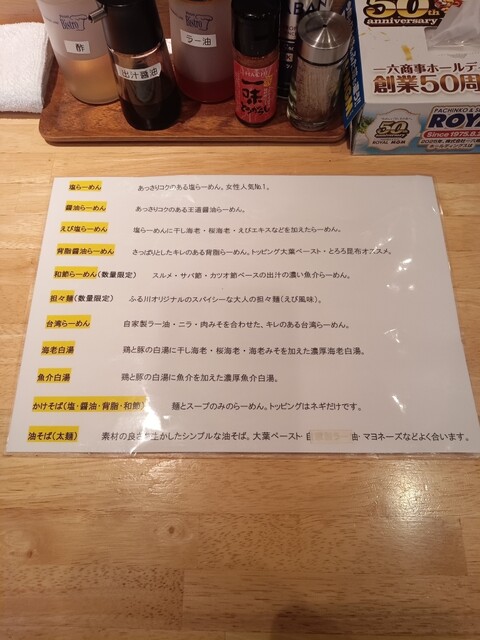 酢
出汁醤油
ラー油
一味
50
anniversary
一六商事ホールデ
創業50周
PACHINKO & S
ROYA
Since 1975.8.2
50
ROYAL M&M
塩らーめん あっさりコクのある塩らーめん。女性人気No.1。
醤油らーめん あっさりコクのある王道醤油らーめん。
えび塩らーめん 塩らーめんに干し海老・桜海老・えびエキスなどを加えたらーめん。
背脂醤油らーめん さっぱりとしたキレのある背脂らーめん。トッピング大葉ペースト・とろろ昆布オススメ。
和節らーめん(数量限定) スルメ・サバ節・カツオ節ベースの出汁の濃い魚介らーめん。
担々麺(数量限定) ふる川オリジナルのスパイシーな大人の担々麺(えび風味)。
台湾らーめん 自家製ラー油・ニラ・肉みそを合わせた、キレのある台湾らーめん。
海老白湯 鶏と豚の白湯に干し海老・桜海老・海老みそを加えた濃厚海老白湯。
魚介白湯 鶏と豚の白湯に魚介を加えた濃厚魚介白湯。
かけそば(塩・醤油・背脂・和節) 麺とスープのみのらーめん。トッピングはネギだけです。
油そば(太麺) 素材の良さを生かしたシンプルな油そば。大葉ペースト 自家製ラー油・マヨネーズなどよく合います。